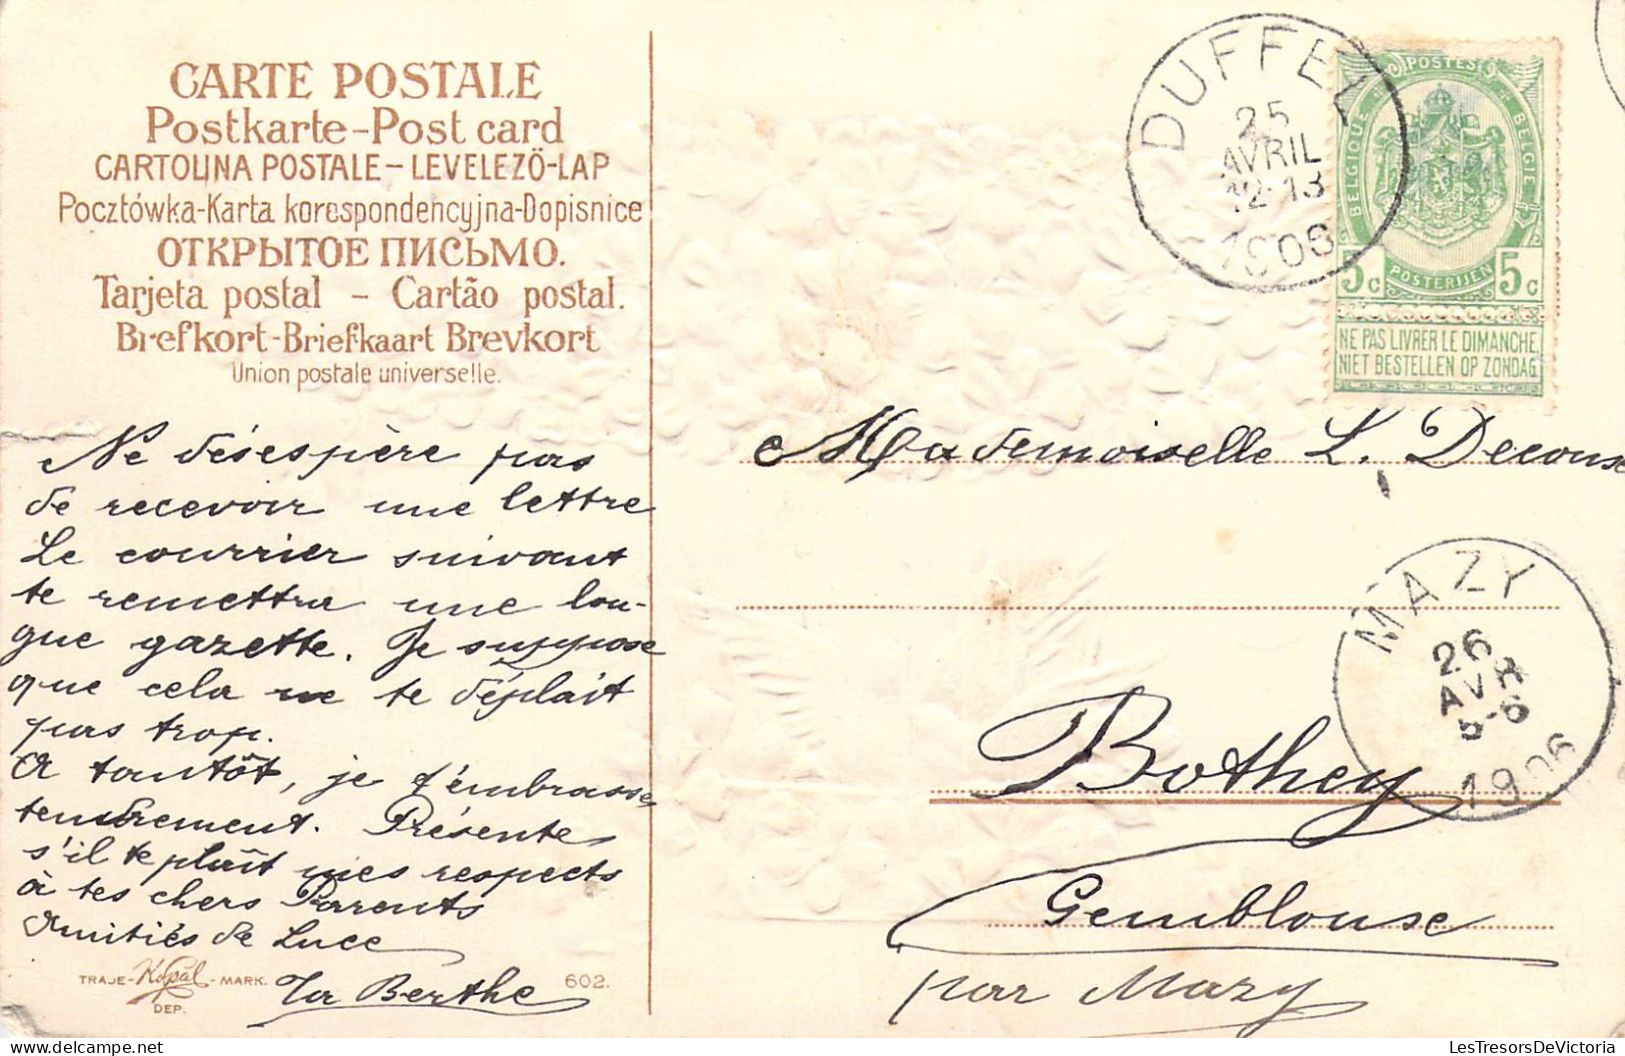 CARTE POSTALE
Postkarte-Post card
CARTOLINA POSTALE-LEVELEZÖ-LAP
Pocztówka-Karta korespondencyjna-Dopisnice
ОТКРЫТОЕ ПИСЬМО.
Tarjeta postal - Cartão postal.
Brefkort-Briefkaart Brevkort
Union postale universelle.
Ne désespère pas
de recevoir une lettre
Le courrier suivant
te remettra une lon-
gue gazette. Je suppose
que cela ne te déplait
pas trop.
A tantôt, je t'embrasse
tendrement. Présente
s'il te plaît mes respects
à tes chers Parents
Amitiés de Luce
Ta Berthe
TRAJE-Kopal-MARK.
DEP.
602.
DUFFEL
25
AVRIL
12-13
1906
POSTES
BELGIQUE
BELGIE
5c POSTERIJEN 5c
NE PAS LIVRER LE DIMANCHE
NIET BESTELLEN OP ZONDAG
Mademoiselle L. Decouse
MAZY
26
AVR
5-6
1906
Bothey
Gemblouse
par Mazy
delcampe.net
LesTresorsDeVictoria